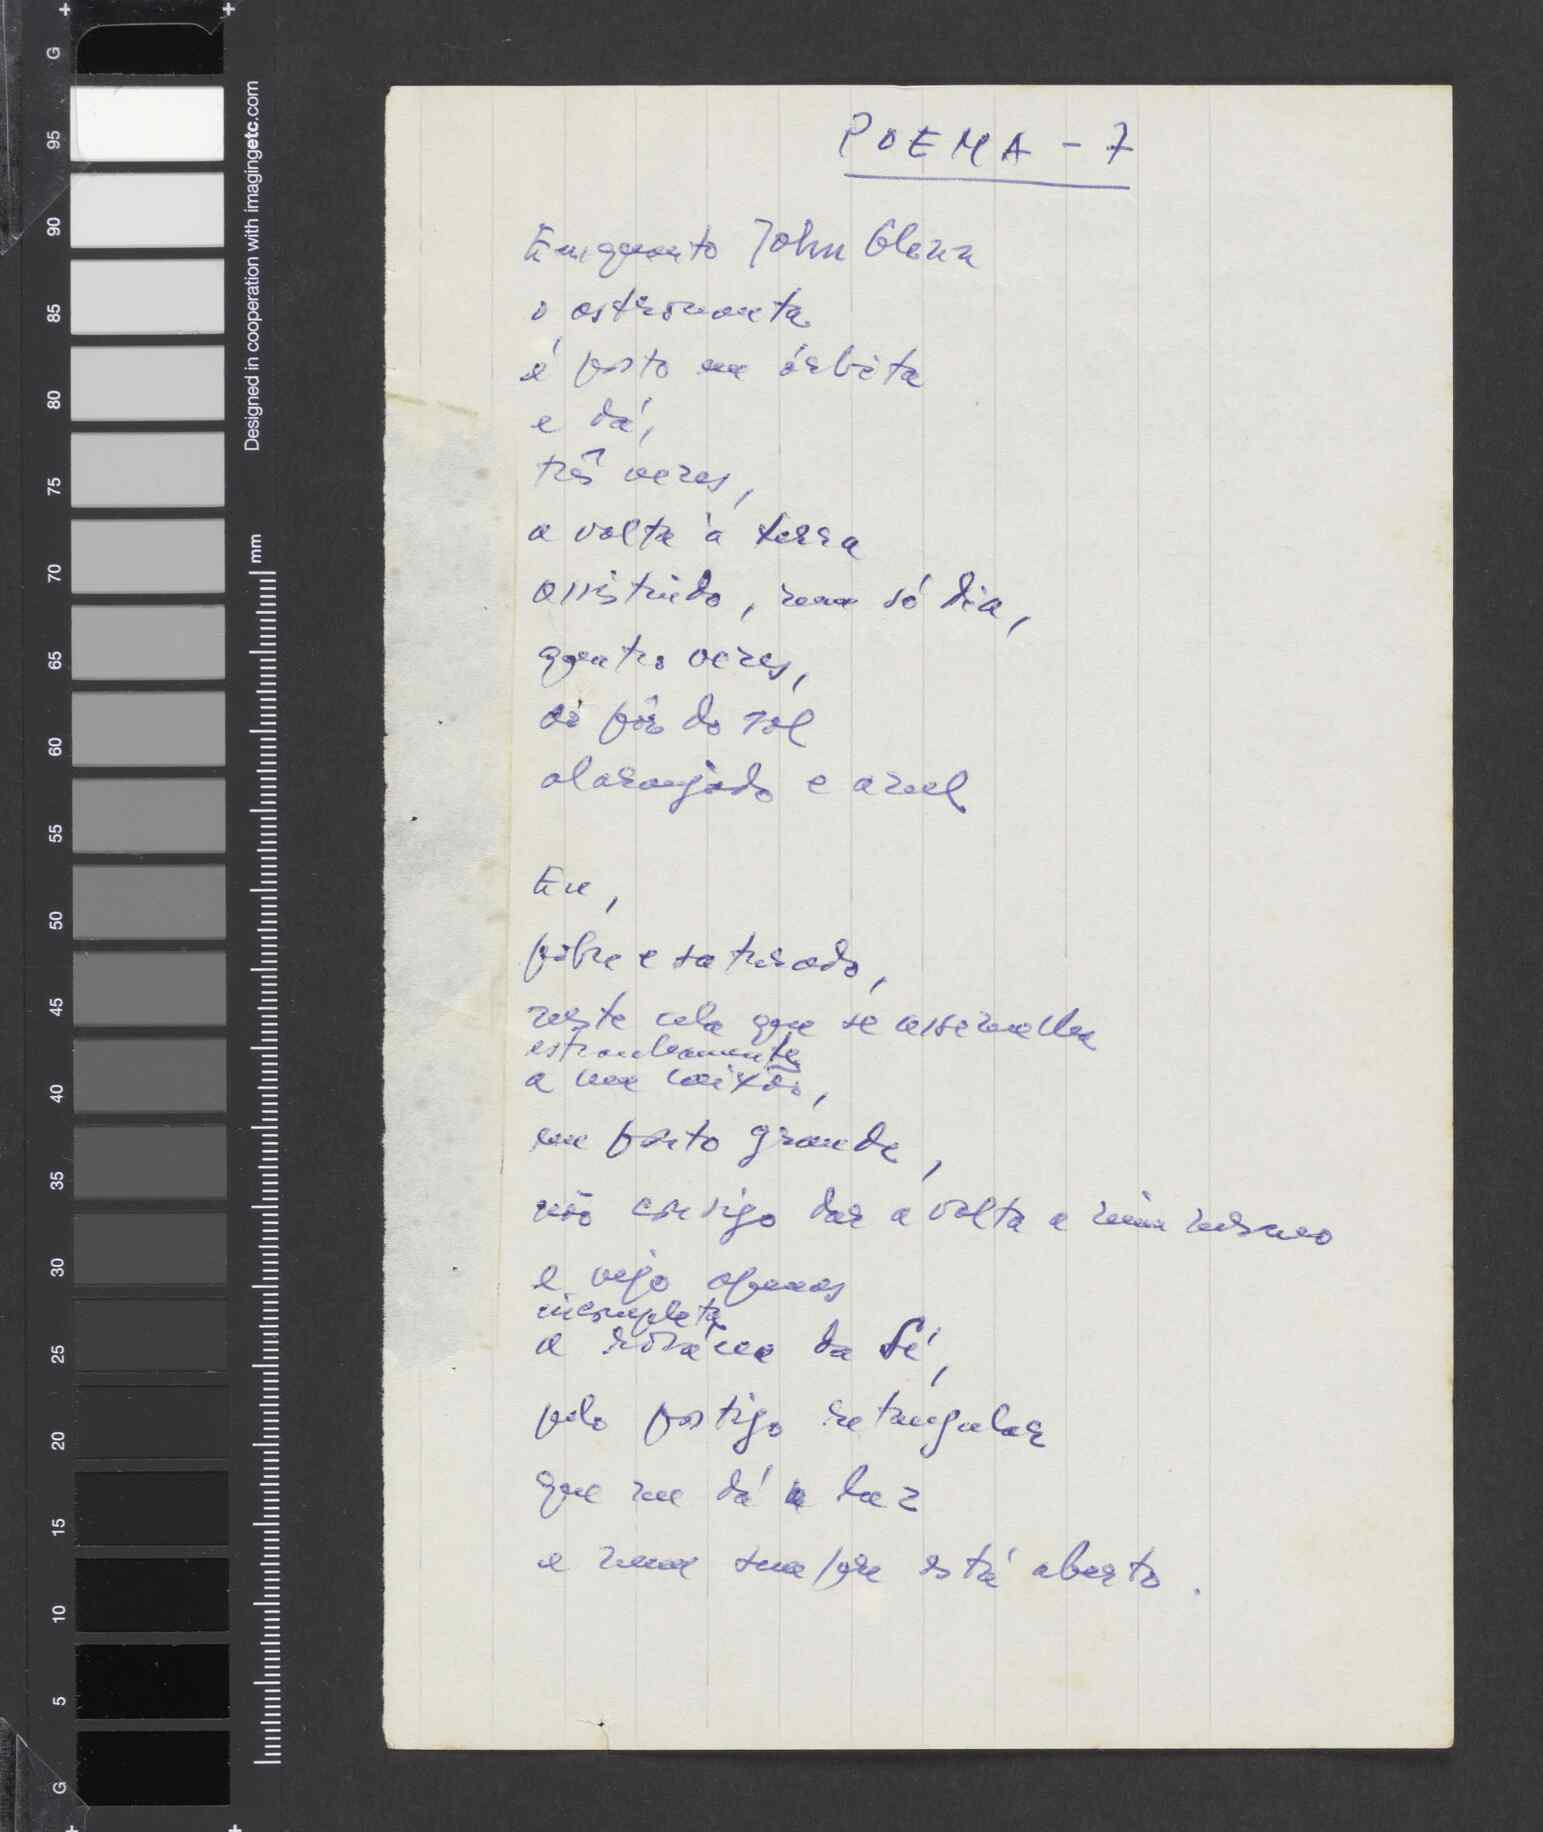 G
95
90
85
80
75
70
65
60
55
50
45
40
35
30
25
20
15
10
5
G
Designed in cooperation with imagingetc.com
mm
POEMA - 7
Enquanto John Glenn
o astronauta
é posto em órbita
e dá,
três vezes,
a volta à terra
assistindo, num só dia,
quatro vezes,
ao pôr do sol
alaranjado e azul
Eu,
pobre e saturado,
nesta cela que se assemelha
estranhamente
a um caixão,
em ponto grande,
não consigo dar a volta a mim mesmo
e vejo apenas
incompleta
a rosácea da Sé,
pelo postigo retangular
que me dá a luz
e nem sempre está aberto.